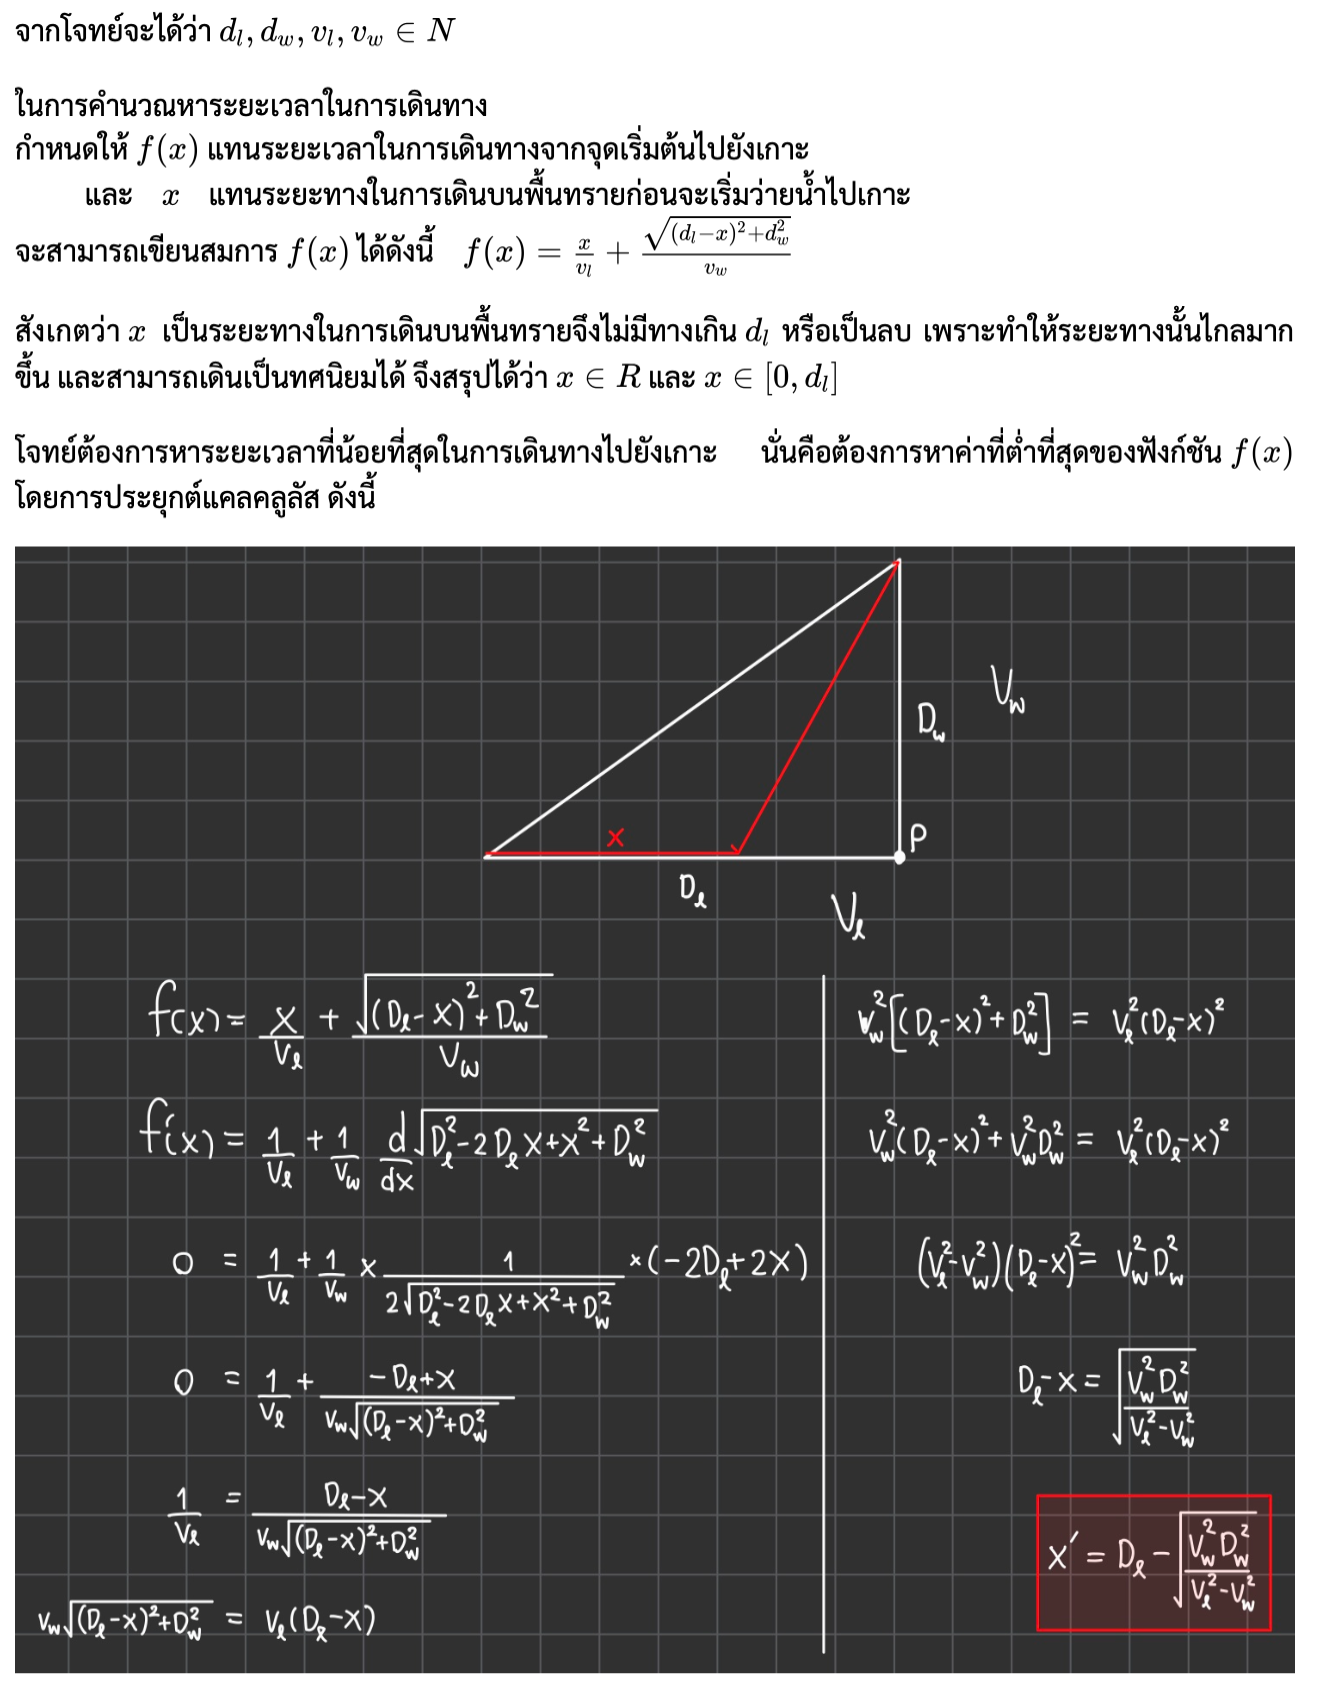 จากโจทย์จะได้ว่า d_l, d_w, v_l, v_w ∈ N
ในการคำนวณหาระยะเวลาในการเดินทาง
กำหนดให้ f(x) แทนระยะเวลาในการเดินทางจากจุดเริ่มต้นไปยังเกาะ
และ x แทนระยะทางในการเดินบนพื้นทรายก่อนจะเริ่มว่ายน้ำไปเกาะ
จะสามารถเขียนสมการ f(x) ได้ดังนี้ f(x) = x/v_l + √((d_l−x)²+d_w²)/v_w
สังเกตว่า x เป็นระยะทางในการเดินบนพื้นทรายจึงไม่มีทางเกิน d_l หรือเป็นลบ เพราะทำให้ระยะทางนั้นไกลมาก
ขึ้น และสามารถเดินเป็นทศนิยมได้ จึงสรุปได้ว่า x ∈ R และ x ∈ [0, d_l]
โจทย์ต้องการหาระยะเวลาที่น้อยที่สุดในการเดินทางไปยังเกาะ นั่นคือต้องการหาค่าที่ต่ำที่สุดของฟังก์ชัน f(x)
โดยการประยุกต์แคลคลูลัส ดังนี้
V_w
D_w
P
x
D_l
V_l
f(x) = x/V_l + √((D_l-x)²+D_w²)/V_w
f'(x) = 1/V_l + 1/V_w d/dx √(D_l²-2D_lx+x²+D_w²)
0 = 1/V_l + 1/V_w × 1/(2√(D_l²-2D_lx+x²+D_w²)) × (-2D_l+2x)
0 = 1/V_l + (-D_l+x)/(V_w√((D_l-x)²+D_w²))
1/V_l = (D_l-x)/(V_w√((D_l-x)²+D_w²))
V_w√((D_l-x)²+D_w²) = V_l(D_l-x)
V_w²[(D_l-x)²+D_w²] = V_l²(D_l-x)²
V_w²(D_l-x)²+V_w²D_w² = V_l²(D_l-x)²
(V_l²-V_w²)(D_l-x)² = V_w²D_w²
D_l-x = √(V_w²D_w²/(V_l²-V_w²))
x' = D_l - √(V_w²D_w²/(V_l²-V_w²))